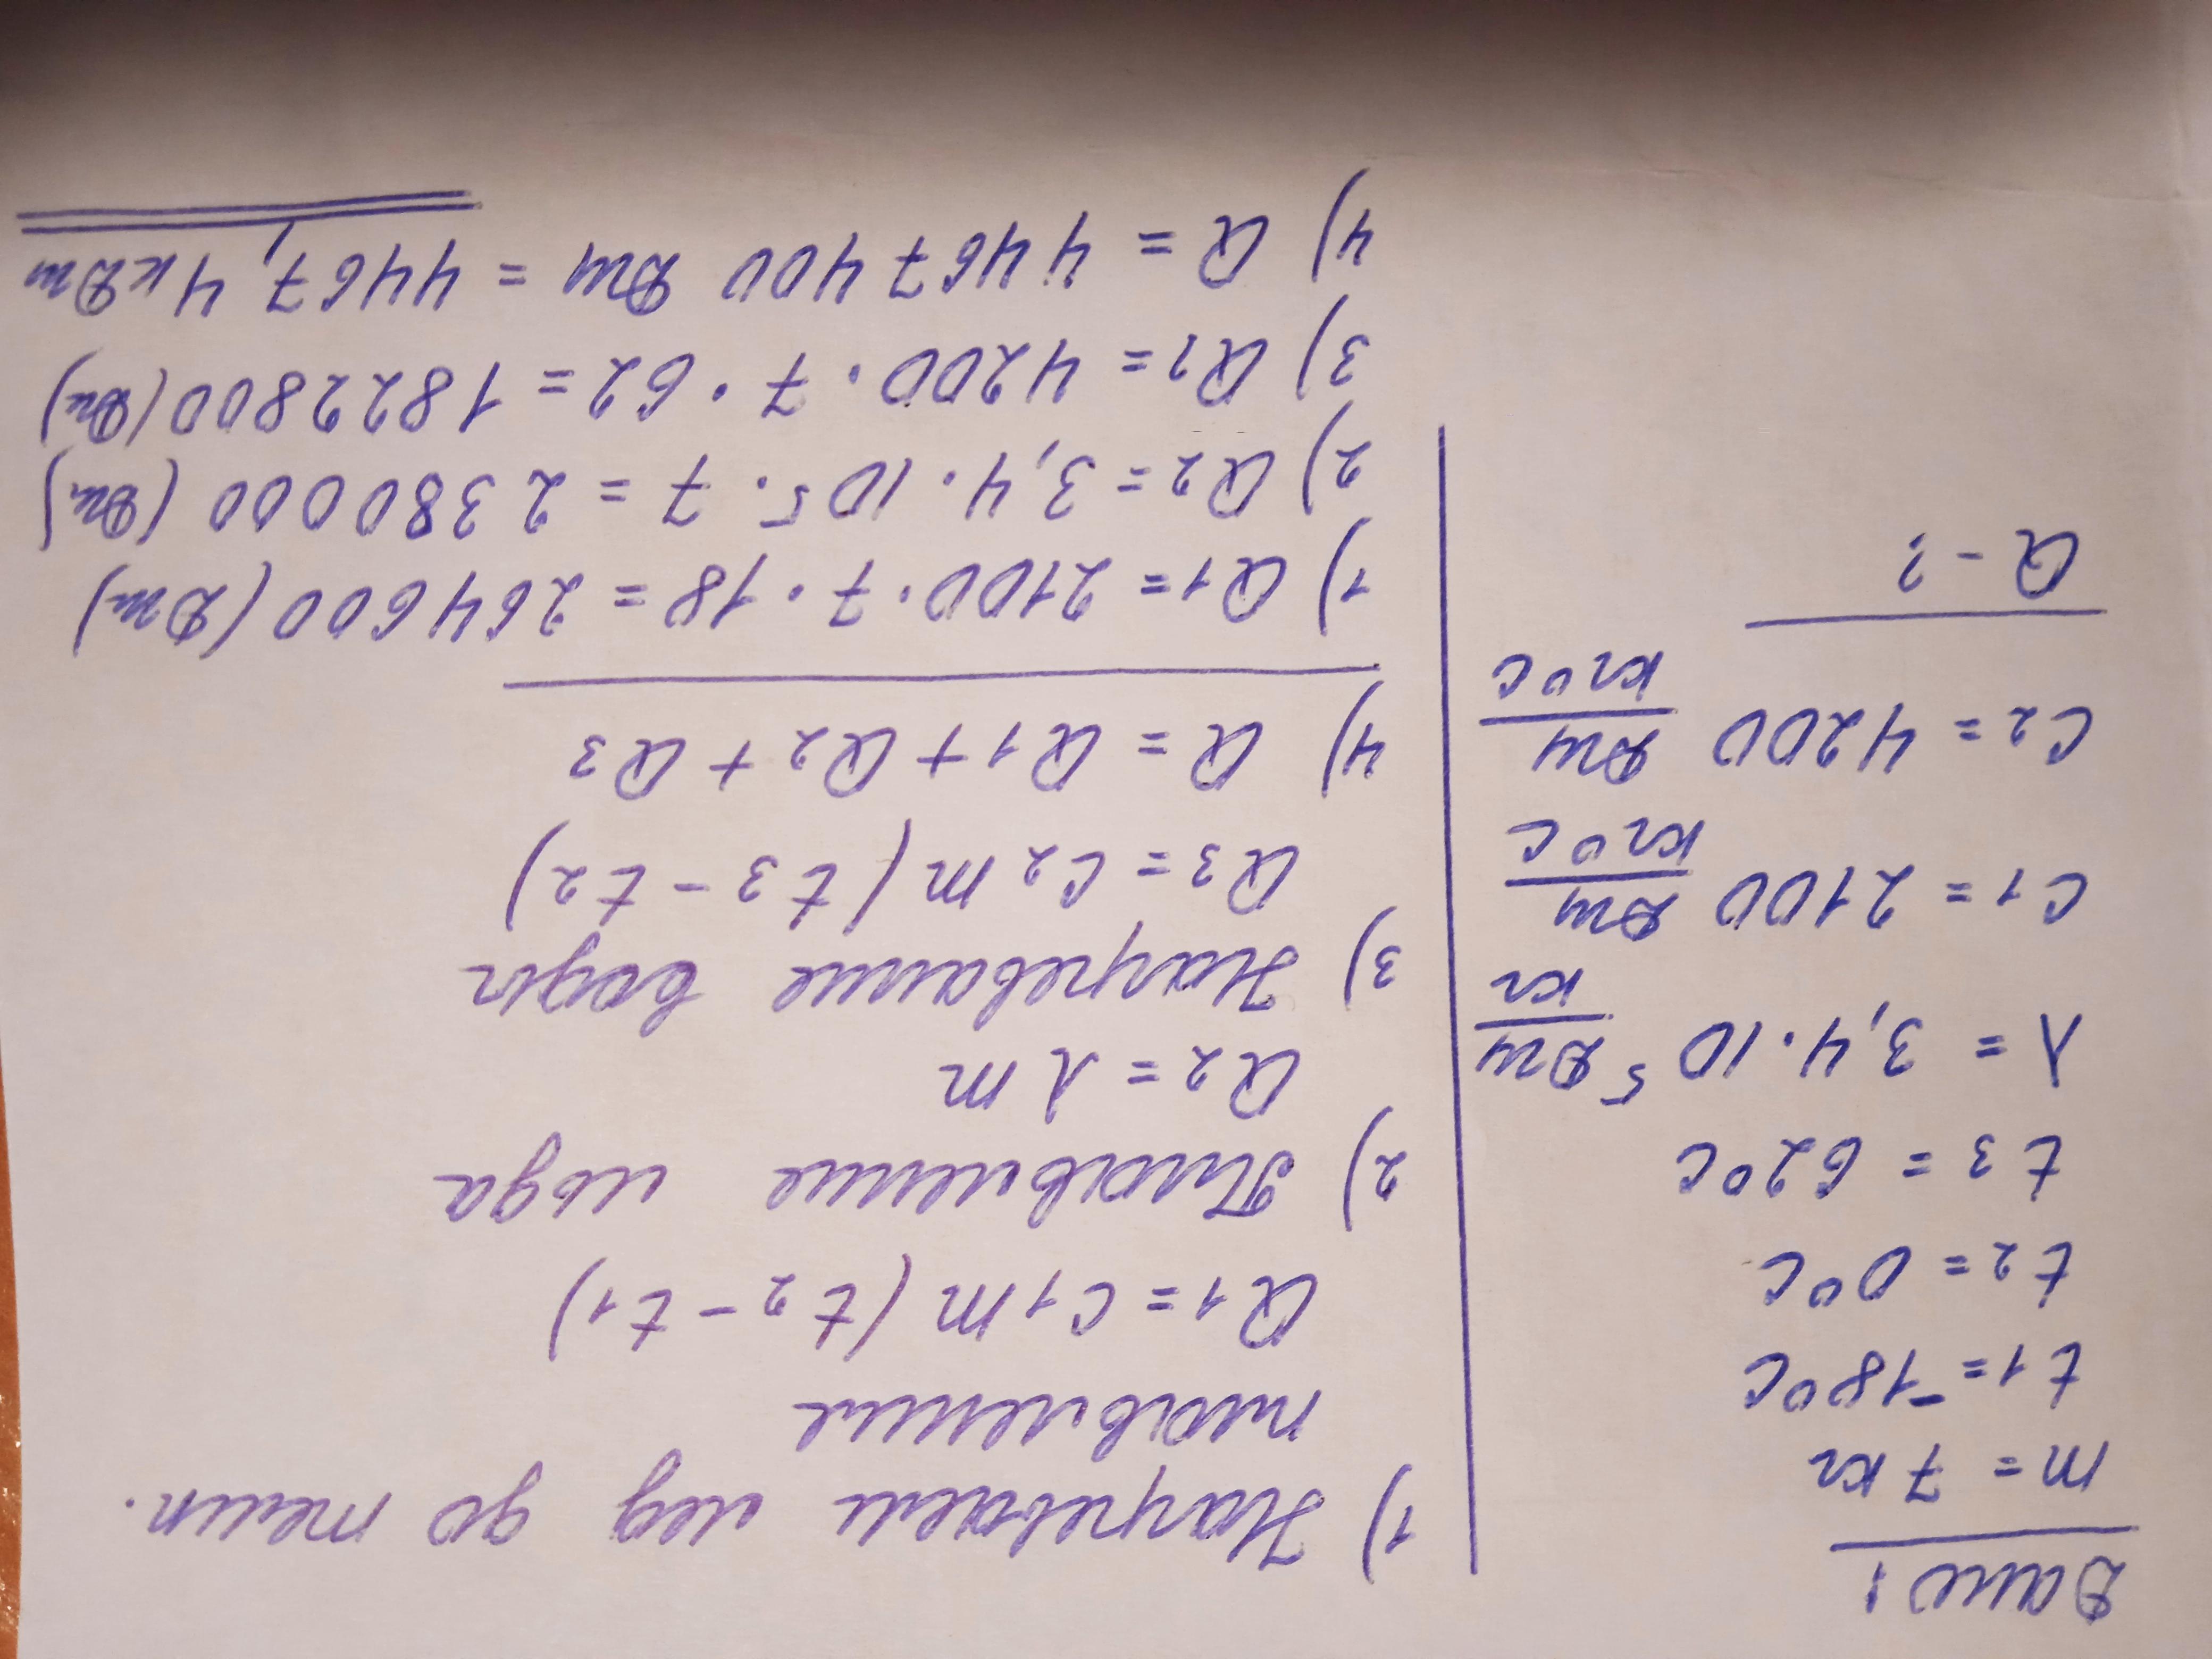 Дано:
m = 7 кг
t1 = -18°C
t2 = 0°C
t3 = 62°C
λ = 3,4·10⁵ Дж/кг
c1 = 2100 Дж/кг°C
c2 = 4200 Дж/кг°C
Q - ?
1) Нагреваем лед до темп.
плавления
Q1 = c1m(t2 - t1)
2) Плавление льда
Q2 = λm
3) Нагревание воды
Q3 = c2m(t3 - t2)
4) Q = Q1 + Q2 + Q3
1) Q1 = 2100·7·18 = 264600 (Дж)
2) Q2 = 3,4·10⁵·7 = 2380000 (Дж)
3) Q3 = 4200·7·62 = 1822800 (Дж)
4) Q = 4467400 Дж = 4467,4 кДж